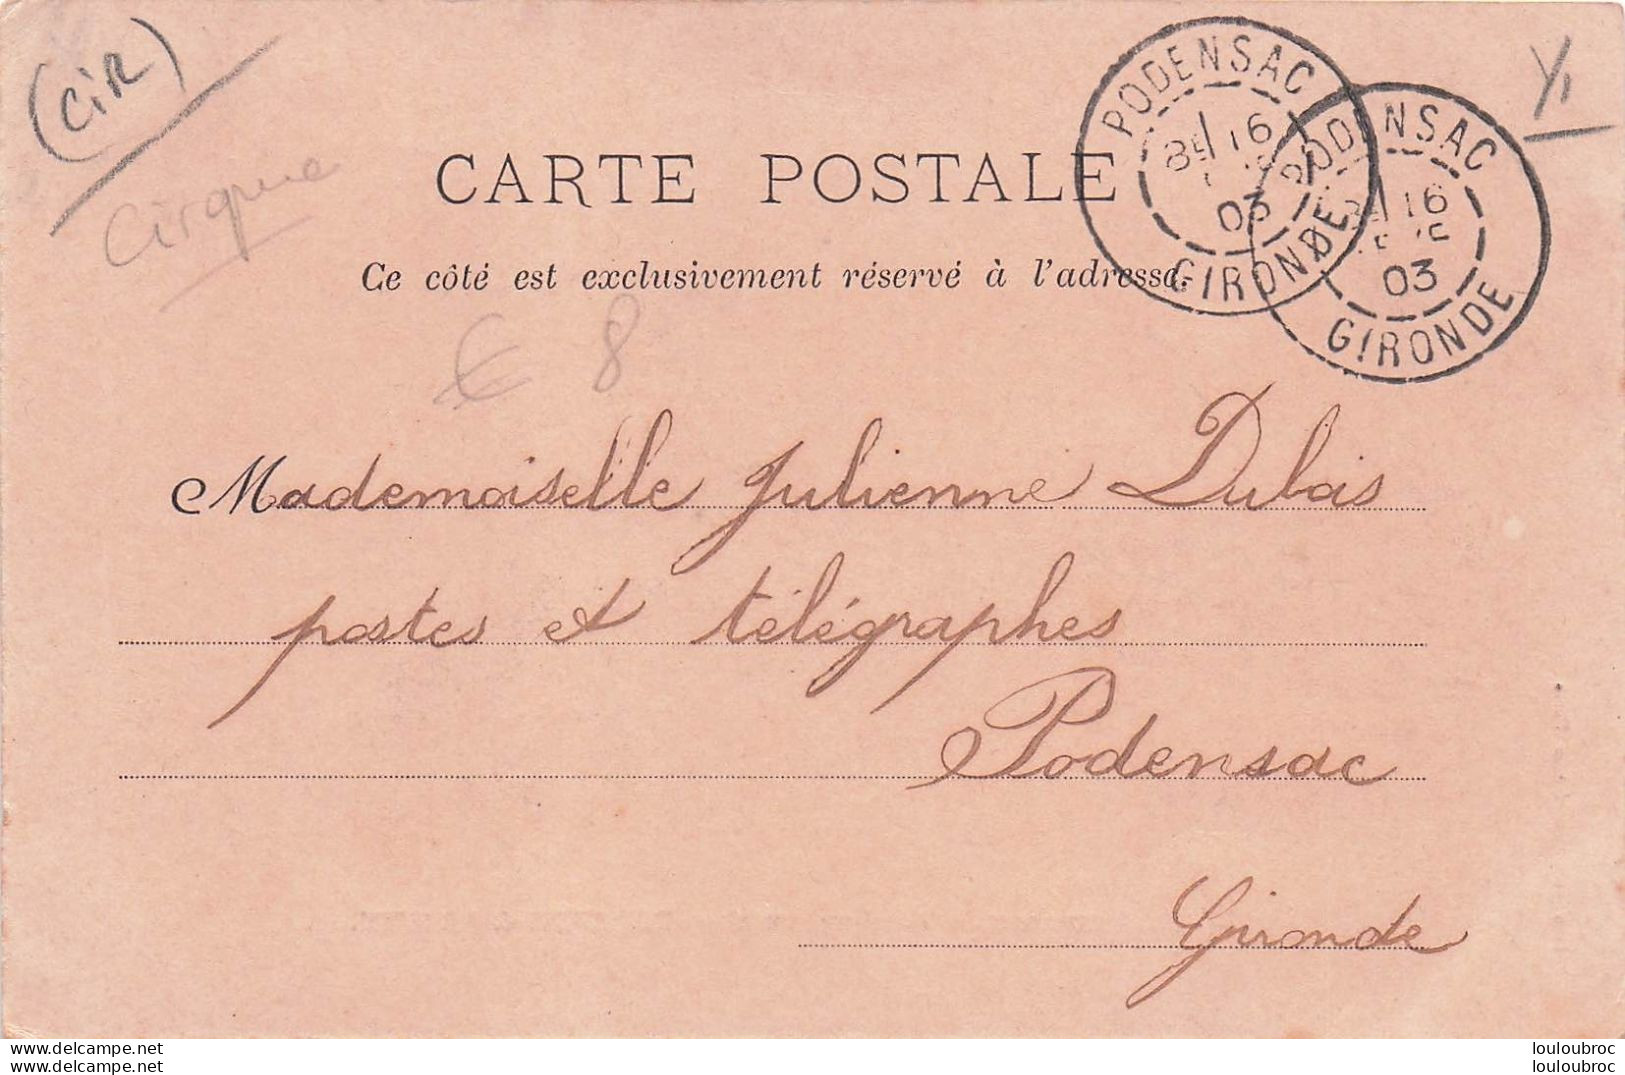 (CIR)
Cirque
Y1
PODENSAC
8E 16
03
GIRONDE
PODENSAC
16
03
GIRONDE
CARTE POSTALE
Ce côté est exclusivement réservé à l'adresse.
€ 8
Mademoiselle Julienne Dubois
postes et télégraphes
Podensac
Gironde
www.delcampe.net louloubroc
www.delcampe.net louloubroc